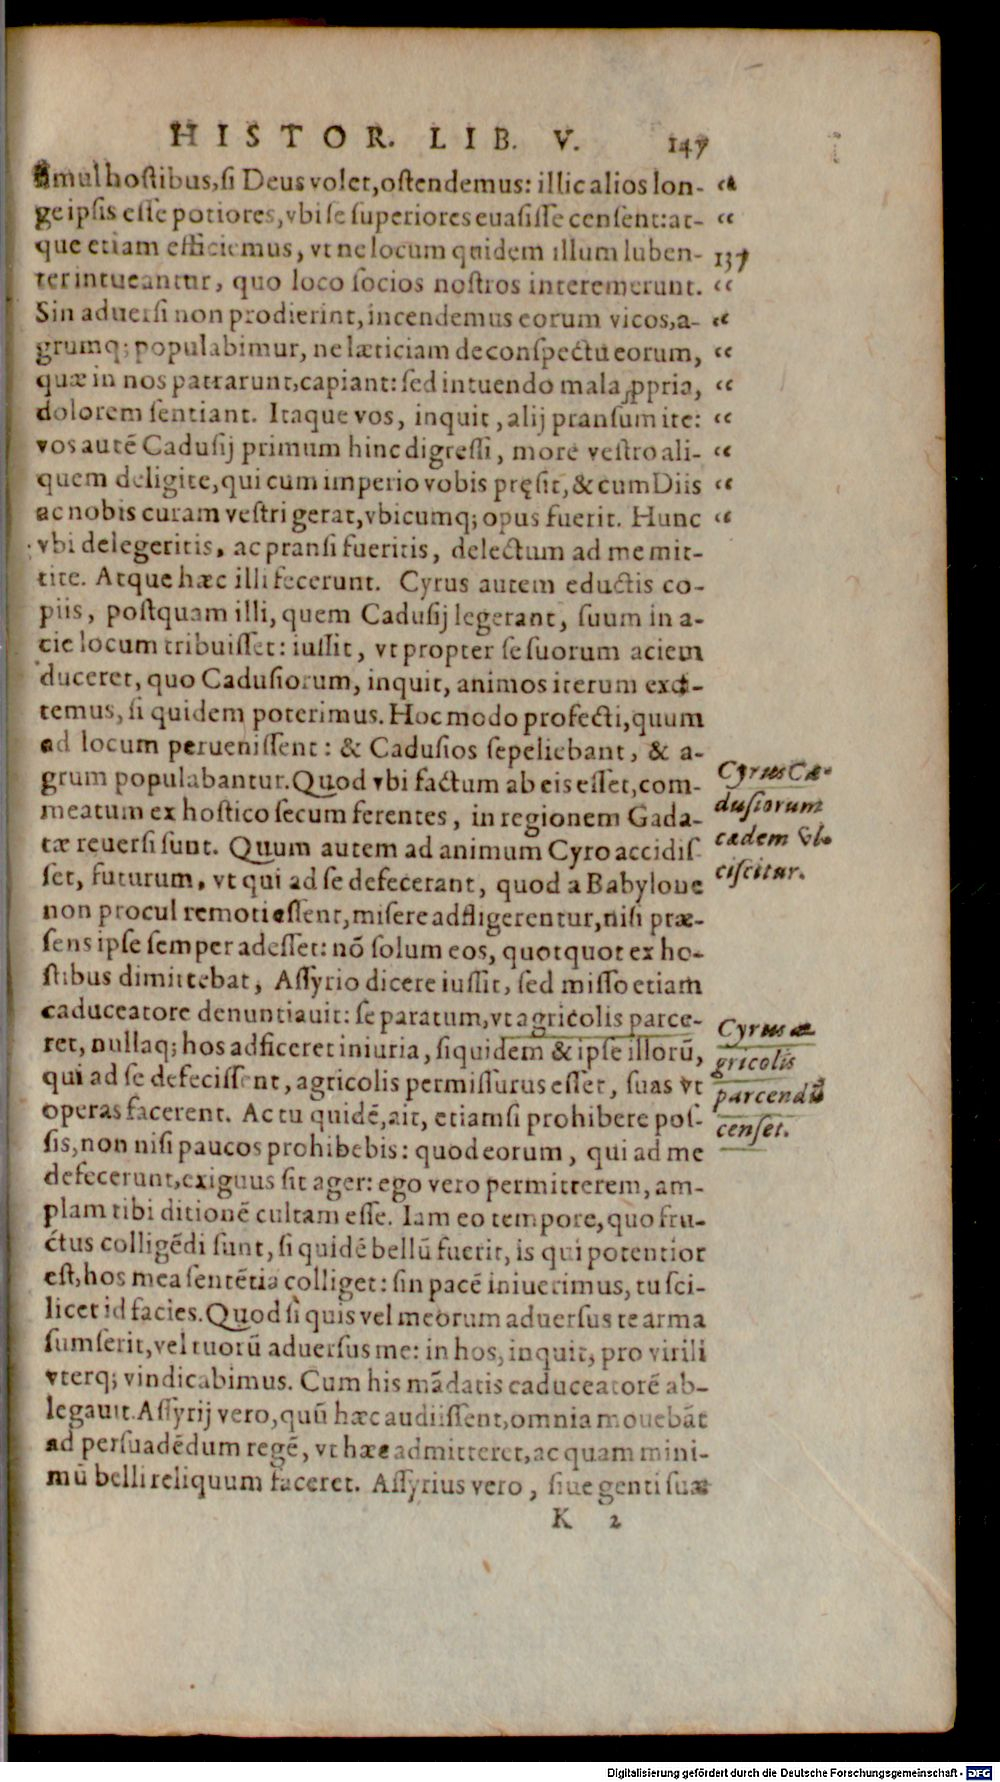 HISTOR. LIB. V. 147
simul hostibus, si Deus volet, ostendemus: illic alios lon- “
ge ipsis esse potiores, vbi se superiores euasisse censent: at- “
que etiam efficiemus, vt ne locum quidem illum luben- 137
ter intueantur, quo loco socios nostros interemerunt. “
Sin aduersi non prodierint, incendemus eorum vicos, a- “
grumq; populabimur, ne læticiam de conspectu eorum, “
quæ in nos patrarunt, capiant: sed intuendo mala ꝓpria, “
dolorem sentiant. Itaque vos, inquit, alij pransum ite: “
vos autē Cadusij primum hinc digressi, more vestro ali- “
quem deligite, qui cum imperio vobis pręsit, & cum Diis “
ac nobis curam vestri gerat, vbicumq; opus fuerit. Hunc “
vbi delegeritis, ac pransi fueritis, delectum ad me mit-
tite. Atque hæc illi fecerunt. Cyrus autem eductis co-
piis, postquam illi, quem Cadusij legerant, suum in a-
cie locum tribuisset: iussit, vt propter se suorum aciem
duceret, quo Cadusiorum, inquit, animos iterum exci-
temus, si quidem poterimus. Hoc modo profecti, quum
ad locum peruenissent: & Cadusios sepeliebant, & a-
grum populabantur. Quod vbi factum ab eis esset, com-
meatum ex hostico secum ferentes, in regionem Gada-
tæ reuersi sunt. Quum autem ad animum Cyro accidis
set, futurum, vt qui ad se defecerant, quod a Babylone
non procul remoti essent, misere adfligerentur, nisi præ-
sens ipse semper adesset: nō solum eos, quotquot ex ho-
stibus dimittebat, Assyrio dicere iussit, sed misso etiam
caduceatore denuntiauit: se paratum, vt agricolis parce-
ret, nullaq; hos adficeret iniuria, siquidem & ipse illorū,
qui ad se defecissent, agricolis permissurus esset, suas vt
operas facerent. Ac tu quidē, ait, etiamsi prohibere pos-
sis, non nisi paucos prohibebis: quod eorum, qui ad me
defecerunt, exiguus sit ager: ego vero permitterem, am-
plam tibi ditionē cultam esse. Iam eo tempore, quo fru-
ctus colligēdi sunt, si quidē bellū fuerit, is qui potentior
est, hos mea sentētia colliget: sin pacē iniuerimus, tu sci-
licet id facies. Quod si quis vel meorum aduersus te arma
sumserit, vel tuorū aduersus me: in hos, inquit, pro virili
vterq; vindicabimus. Cum his mādatis caduceatorē ab-
legauit. Assyrij vero, quū hæc audiissent, omnia mouebāt
ad persuadēdum regē, vt hæc admitteret, ac quam mini-
mū belli reliquum faceret. Assyrius vero, siue genti suæ
K 2
Cyrus Ca-
dusiorum
cædem vl-
ciscitur.
Cyrus a-
gricolis
parcendū
censet.
Digitalisierung gefördert durch die Deutsche Forschungsgemeinschaft - DFG